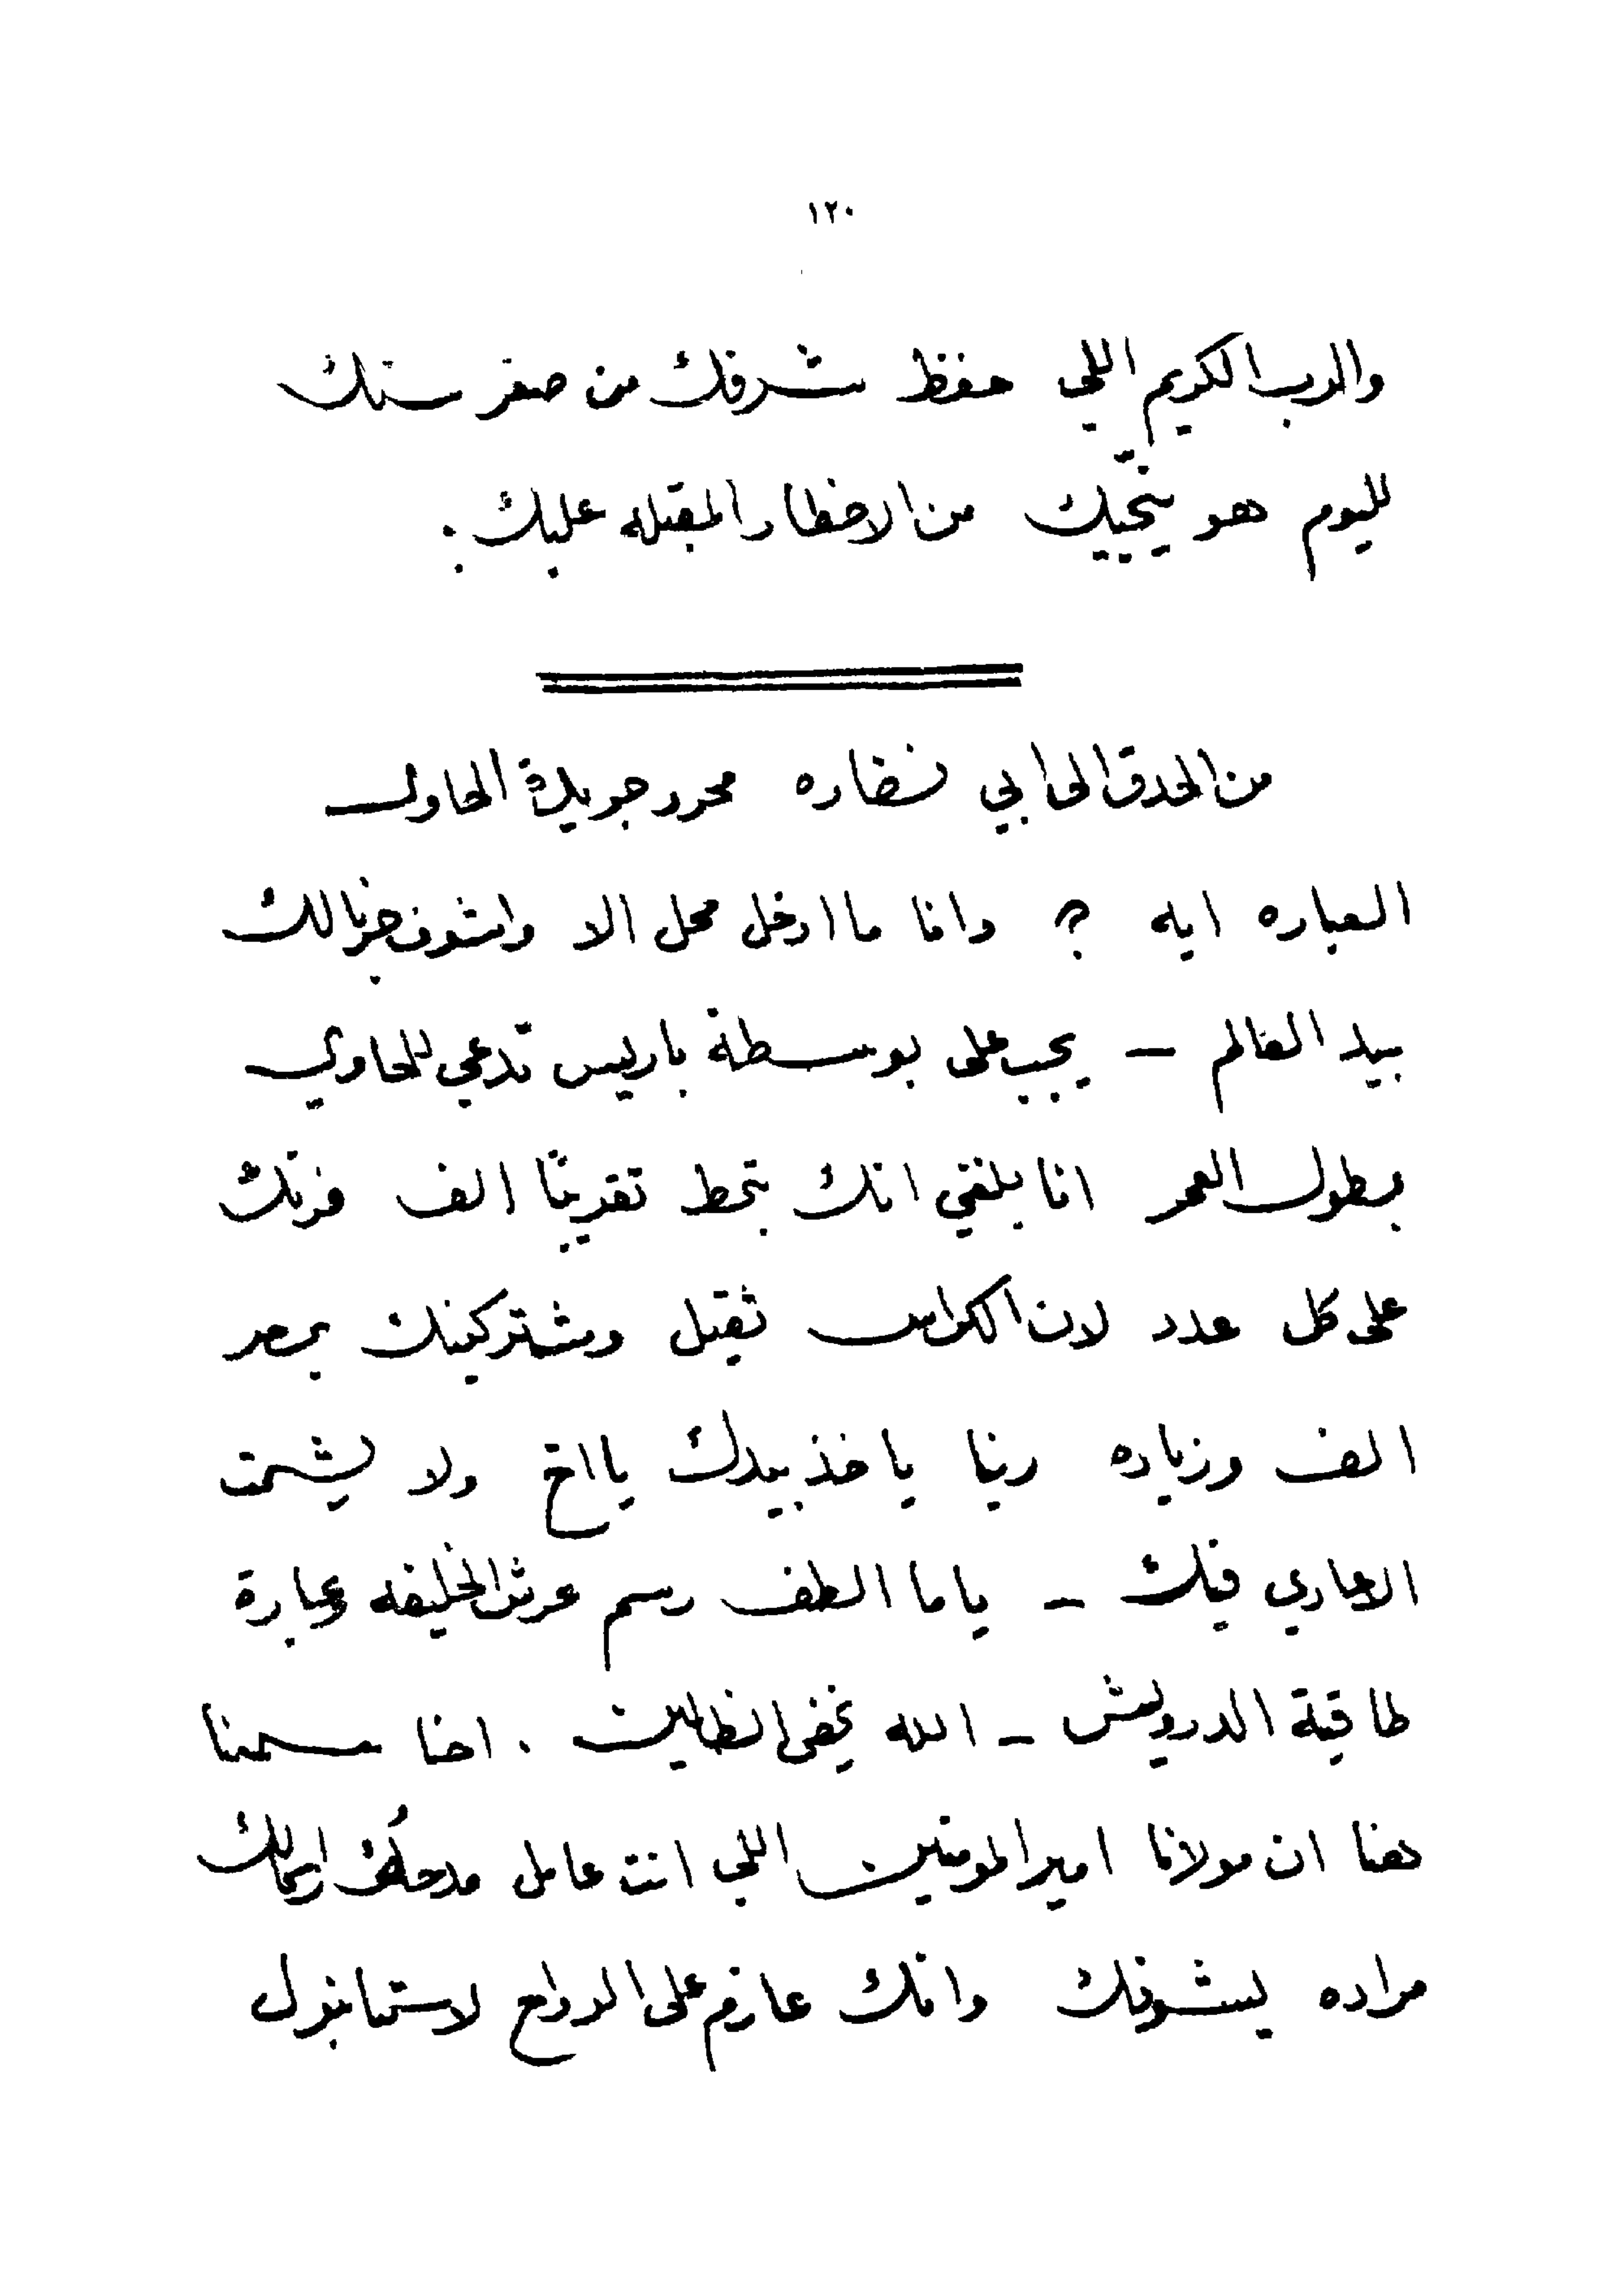 ١٢٠
والرب الكريم اللي حفظ شرفك من صغر سنك
لليوم هو ينجّيك من الاخطار المقبله عليك .
من الحدق الى ابي نضاره محرر جريدة الحاوي
العباره ايه ؟ وانا ما ادخل محل الا واشوف جرنالك
بيد العالم – يجب على بوسطة باريس تدعي للحاوي
بطول العمر انا بلغني انك بتحط تقريبًا الف فرنك
على كل عدد لان الكراس ثقيل ومشتركينك بمصر
الف وزياده ربنا ياخذ بيدك يا اخ ولا يشمت
الاعادي فيك – ياما الطف رسم عرش الخليفه وعبارة
طاقية الدرويش – الله يخفي الظالمين . احنا سمعنا
هنا ان مولانا امير المومنين اللي انت عامل مدحك
مراده يشوفك وانك عازم على الرواح لاستانبول